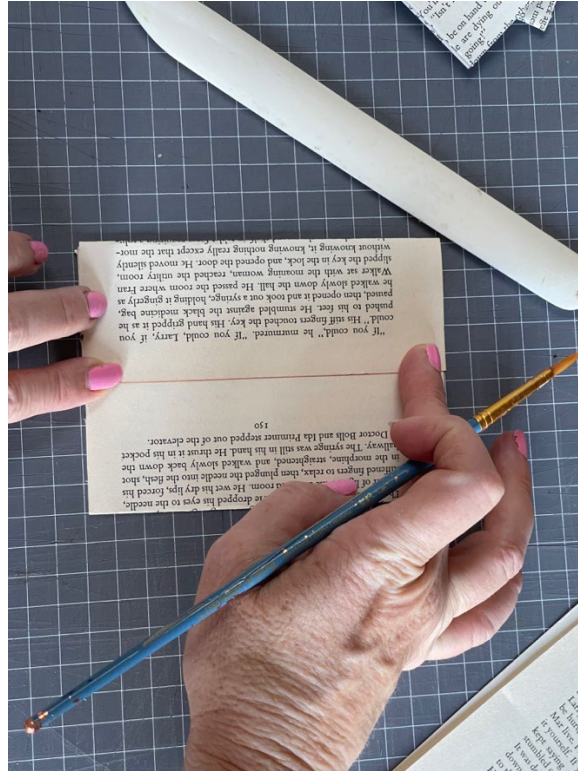 "Isn't
be on hand
are dying
going!"
dropped his eyes to the needle,
room. He wet his dry lips, forced his
fingers to relax, then plunged the needle into the flesh, shot
in the morphine, straightened, and walked slowly back down the
hallway. The syringe was still in his hand. He thrust it in his pocket
Doctor Bolls and Ida Primmer stepped out of the elevator.
150
"If you could," he murmured. "If you could, Larry, if you
could." His stiff fingers touched the key. His hand gripped it as he
pushed to his feet. He stumbled against the black medicine bag,
paused, then opened it and took out a syringe, holding it gingerly as
he walked slowly down the hall. He passed the room where Fran
Walker sat with the moaning woman, reached the utility room,
slipped the key in the lock, and opened the door. He moved silently
without knowing it, knowing nothing really except that the mor-
Lar
be hun
Mar live.
it yourself.
kept saying
stumbled
It was
down